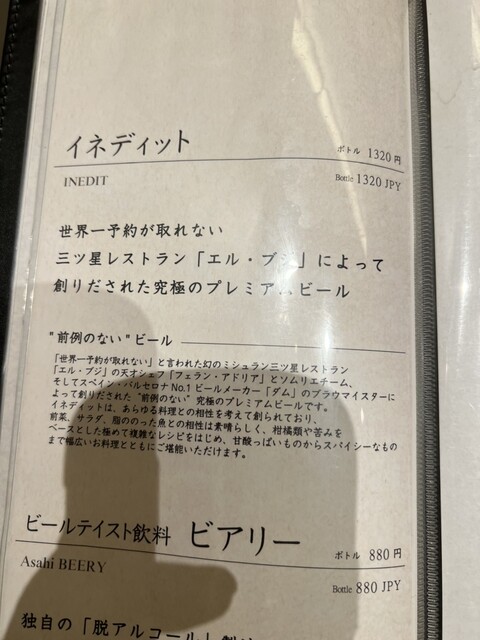 イネディット
ボトル 1320円
INEDIT
Bottle 1320 JPY
世界一予約が取れない
三ツ星レストラン「エル・ブジ」によって
創りだされた究極のプレミアムビール
"前例のない"ビール
「世界一予約が取れない」と言われた幻のミシュラン三ツ星レストラン
「エル・ブジ」の天才シェフ「フェラン・アドリア」とソムリエチーム、
そしてスペイン・バルセロナNo.1ビールメーカー「ダム」のブラウマイスターに
よって創りだされた"前例のない"究極のプレミアムビールです。
イネディットは、あらゆる料理との相性を考えて創られており、
前菜、サラダ、脂ののった魚との相性は素晴らしく、柑橘類や苦みを
ベースとした極めて複雑なレシピをはじめ、甘酸っぱいものからスパイシーなもの
まで幅広いお料理とともにご堪能いただけます。
ビールテイスト飲料 ビアリー
ボトル 880円
Asahi BEERY
Bottle 880 JPY
独自の「脱アルコール」